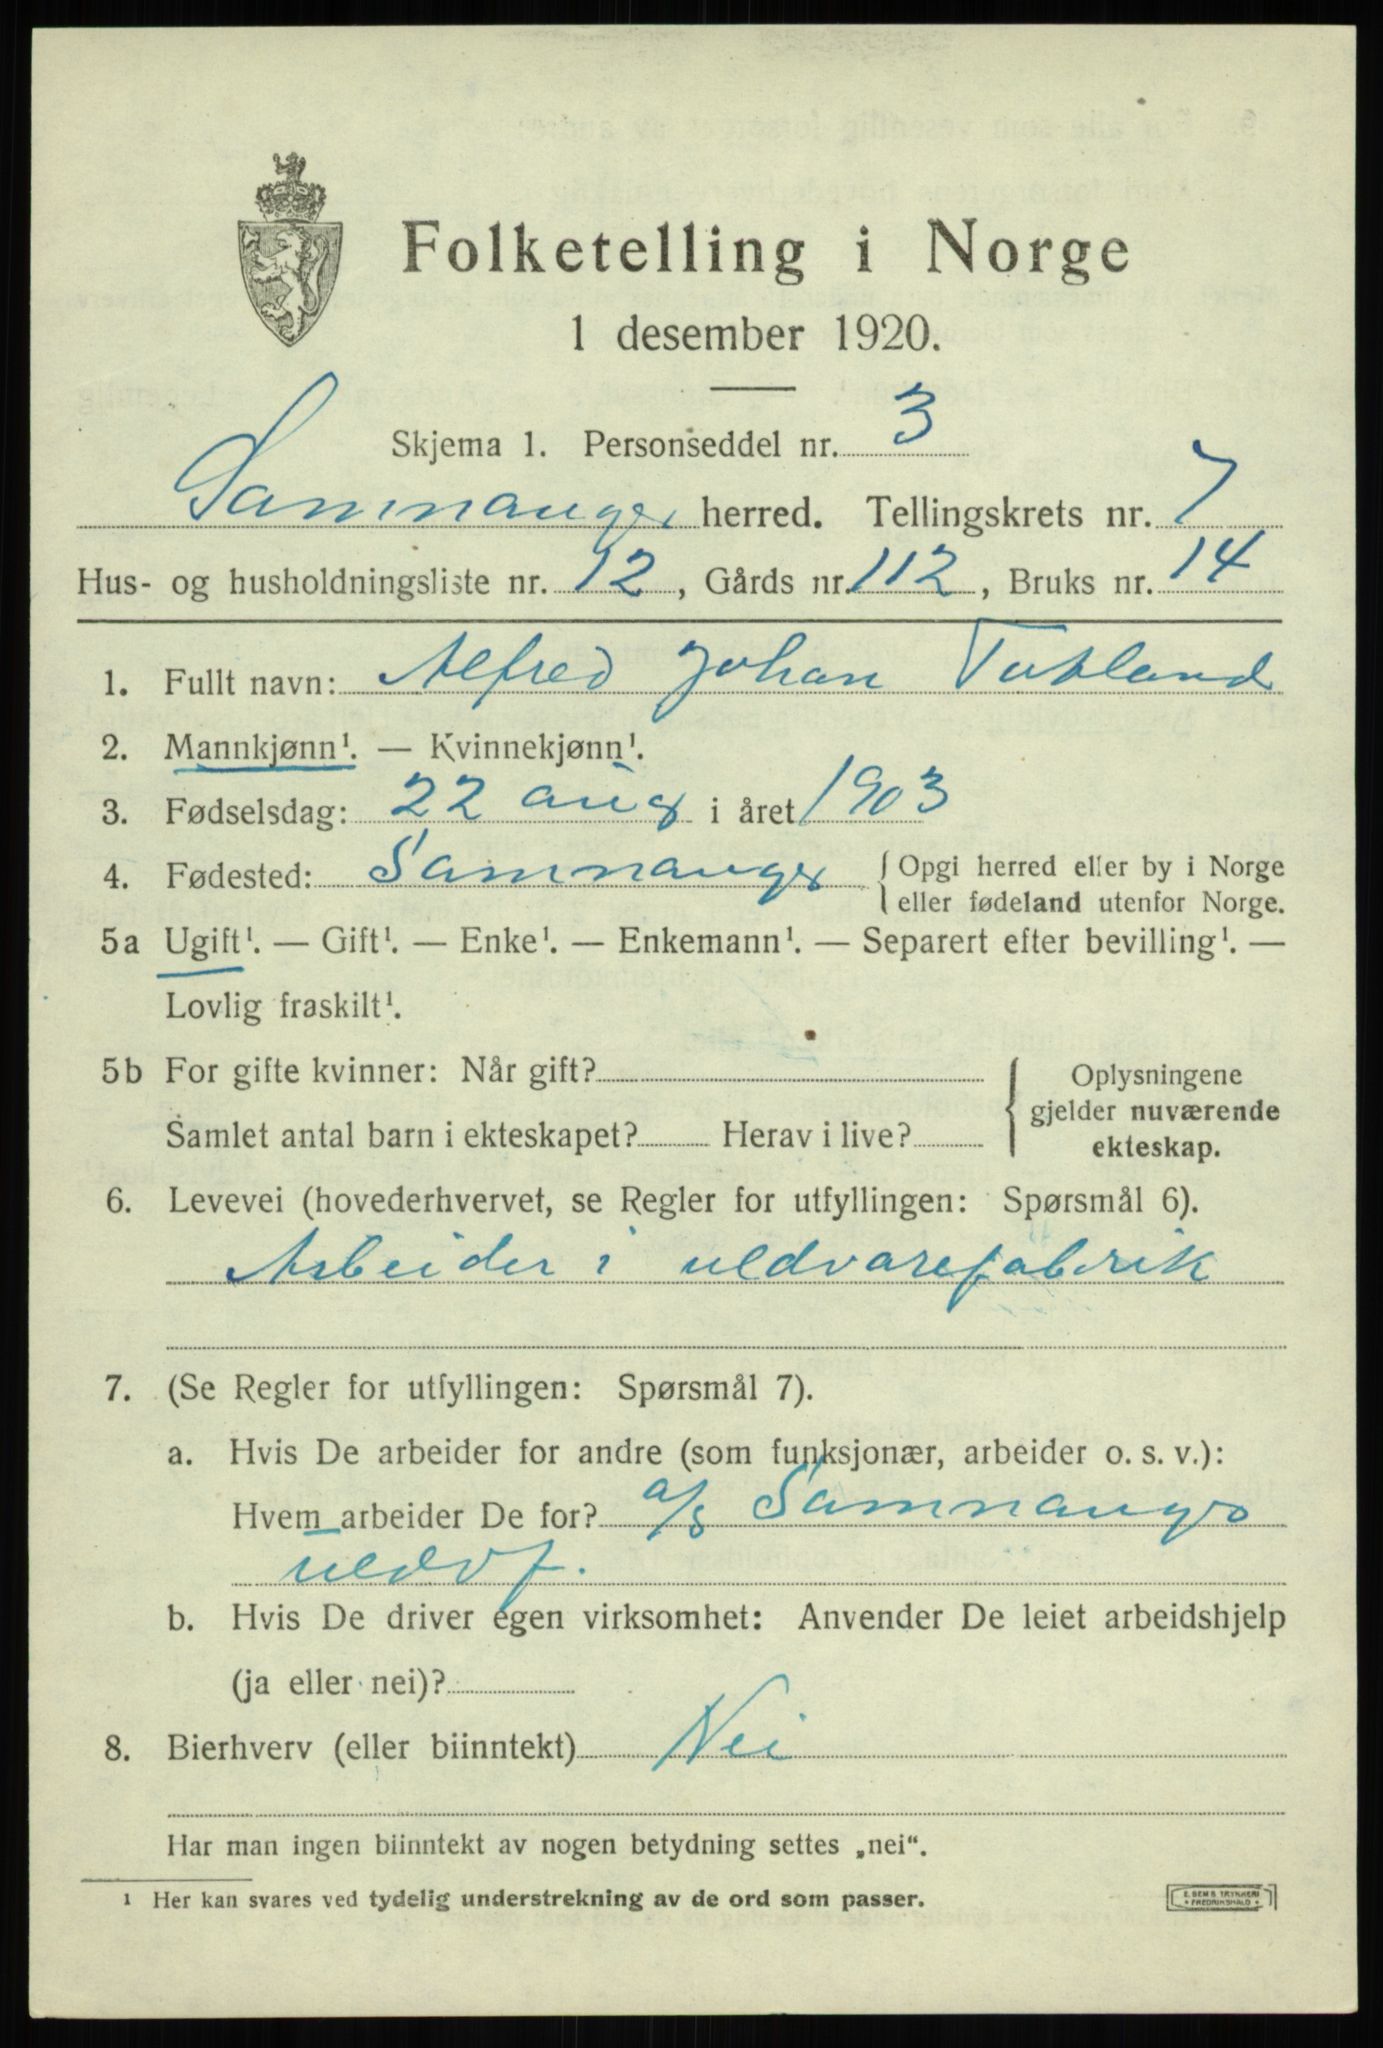 Folketelling i Norge
1 desember 1920.
Skjema 1. Personseddel nr. 3
Samnanger herred. Tellingskrets nr. 7
Hus- og husholdningsliste nr. 12, Gårds nr. 112, Bruks nr. 14
1. Fullt navn: Alfred Johan
2. Mannkjønn¹. — Kvinnekjønn¹.
3. Fødselsdag: 22 aug i året 1903
4. Fødested: Samnanger { Opgi herred eller by i Norge
eller fødeland utenfor Norge.
5a Ugift¹. — Gift¹. — Enke¹. — Enkemann¹. — Separert efter bevilling¹. —
Lovlig fraskilt¹.
5b For gifte kvinner: Når gift?
Samlet antal barn i ekteskapet? Herav i live?
{ Oplysningene
gjelder nuværende
ekteskap.
6. Levevei (hovederhvervet, se Regler for utfyllingen: Spørsmål 6).
Arbeider i uldvarefabrik
7. (Se Regler for utfyllingen: Spørsmål 7).
a. Hvis De arbeider for andre (som funksjonær, arbeider o. s. v.):
Hvem arbeider De for? a/s Samnanger
uldvf.
b. Hvis De driver egen virksomhet: Anvender De leiet arbeidshjelp
(ja eller nei)?
8. Bierhverv (eller biinntekt) Nei
Har man ingen biinntekt av nogen betydning settes „nei“.
¹ Her kan svares ved tydelig understrekning av de ord som passer.
E. SEMS TRYKKERI
• FREDRIKSHALD •